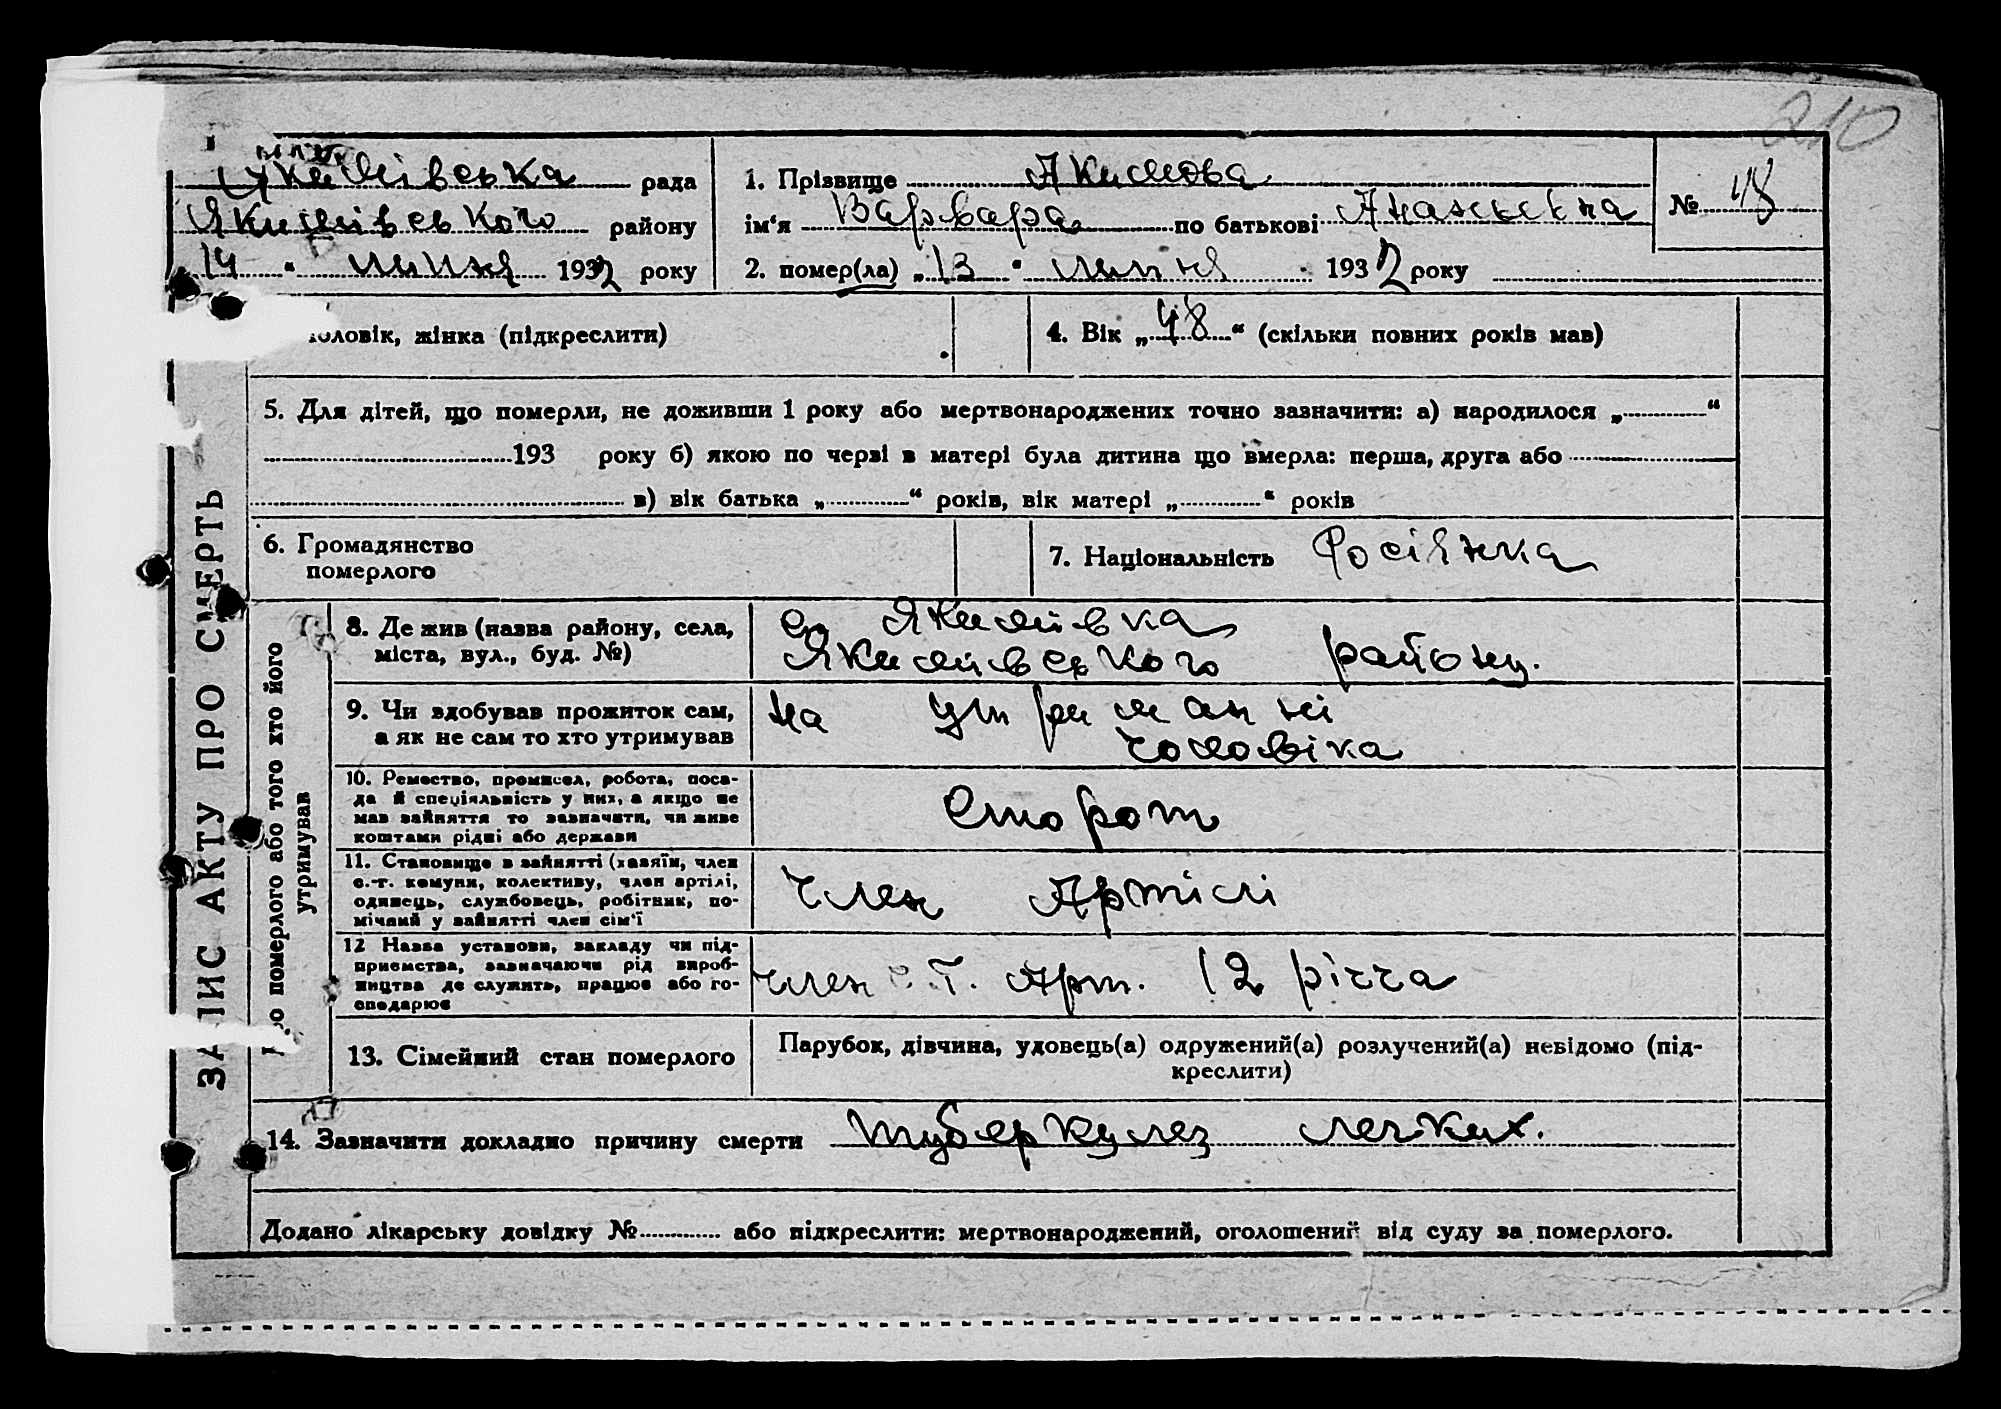 210
Якимівська рада
Якимівського району
14 " липня 1932 року
1. Прізвище Акимова
ім'я Варвара по батькові Ананьевна
2. помер(ла) „13 " липня 1932 року
№ 48
чоловік, жінка (підкреслити)
4. Вік „48“ (скільки повних років мав)
5. Для дітей, що померли, не доживши 1 року або мертвонароджених точно зазначити: а) народилося „ “
193 року б) якою по черві в матері була дитина що вмерла: перша, друга або
в) вік батька „ “ років, вік матері „ “ років
6. Громадянство
померлого
7. Національність Росіянка
ЗАПИС АКТУ ПРО СМЕРТЬ
Про померлого або того хто його
утримував
8. Де жив (назва району, села,
міста, вул., буд. №)
с. Якимівка
Якимівського району.
9. Чи вдобував прожиток сам,
а як не сам то хто утримував
на утриманні
чоловіка
10. Ремество, промисел, робота, поса-
да й спеціяльність у них, а якщо не
мав зайняття то зазначити, чи живе
коштами рідні або держави
Сторож
11. Становище в зайнятті (хазяїн, член
с.-г. комуни, колективу, член артілі,
одинець, службовець, робітник, по-
мічний у зайнятті член сім'ї
Член Артілі
12 Назва установи, закладу чи під-
приємства, зазначаючи рід вироб-
ництва де служить, працює або го-
сподарює
член С. Г. Арт. 12 річча
13. Сімейний стан померлого
Парубок, дівчина, удовець(а) одружений(а) розлучений(а) невідомо (під-
креслити)
14. Зазначити докладно причину смерти туберкулез легких.
Додано лікарську довідку № або підкреслити: мертвонароджений, оголошений від суду за померлого.